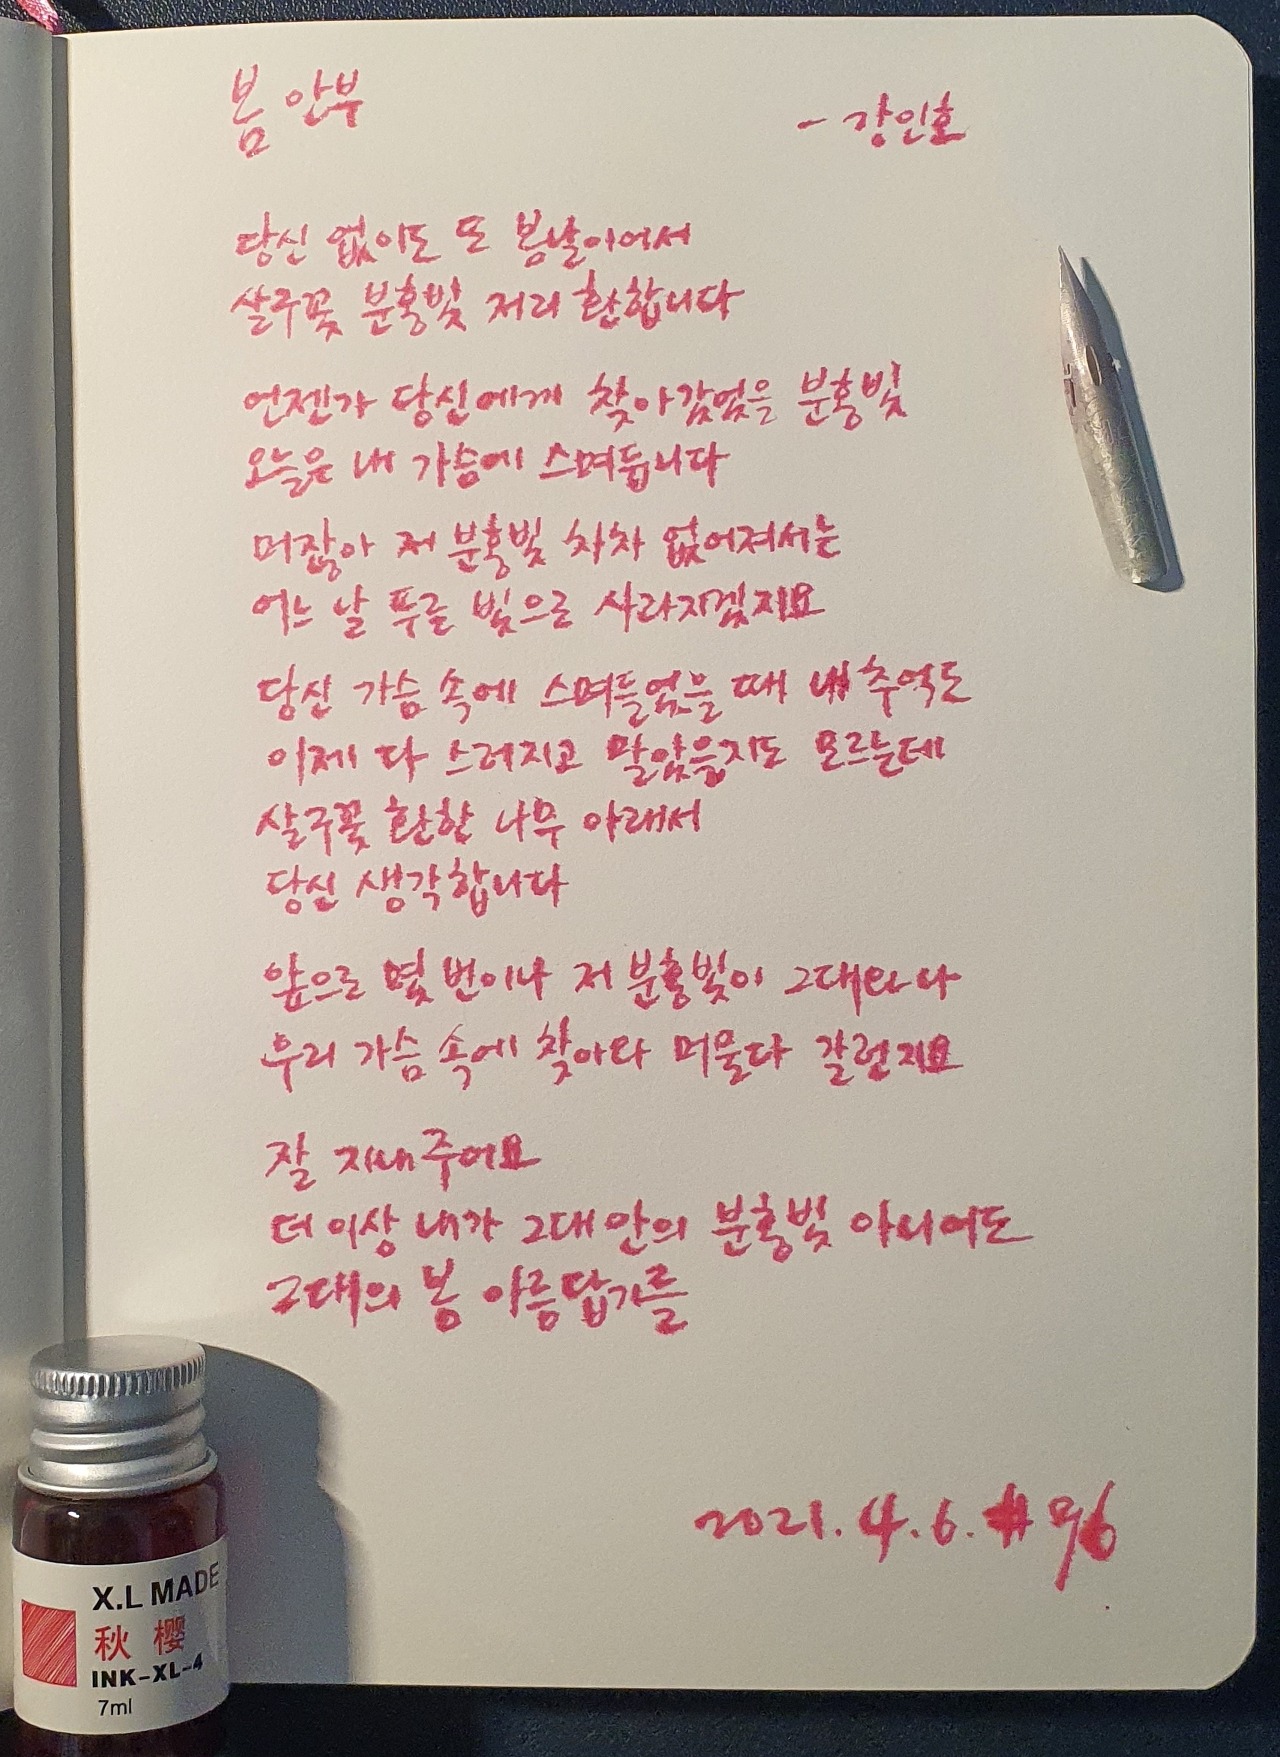 봄 안부
- 강인호
당신 없이도 또 봄날이어서
살구꽃 분홍빛 저리 환합니다
언젠가 당신에게 찾아갔었을 분홍빛
오늘은 내 가슴에 스며듭니다
머잖아 저 분홍빛 차차 엷어져서는
어느 날 푸른 빛으로 사라지겠지요
당신 가슴 속에 스며들었을 때 내 추억도
이제 다 스러지고 말았을지도 모르는데
살구꽃 환한 나무 아래서
당신 생각합니다
앞으로 몇 번이나 저 분홍빛이 그대와 나
우리 가슴 속에 찾아와 머물다 갈런지요
잘 지내 주어요
더 이상 내가 그대 안의 분홍빛 아니어도
그대의 봄 아름답기를
2021. 4. 6. # 96
X.L MADE
秋 樱
INK-XL-4
7ml